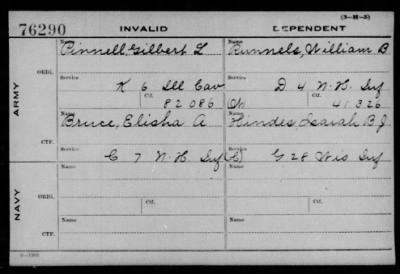 (3-M-5)
76290 INVALID DEPENDENT
Name Name
Pinnell, Gilbert L Runnels, William B
ARMY
ORIG.
Service Service
K 6 Ill Cav D 4 N.H. Inf
Ctf. Ctf.
82086 41326
Name Name
Bruce, Elisha A Hindes, Isaiah B J
CTF.
Service Service
C 7 N.H. Inf G 28 Wis Inf
Name Name
NAVY
ORIG.
Ctf. Ctf.
Name Name
CTF.